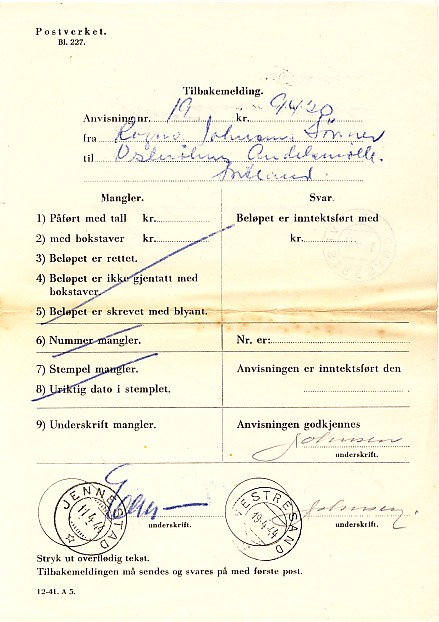 Postverket.
Bl. 227.
Tilbakemelding.
Anvisning nr. 19 kr. 9420
fra Johnsens Sønner
til Andelsmølle.
Mangler.
Svar.
1) Påført med tall kr.
Beløpet er inntektsført med
2) med bokstaver kr.
kr.
3) Beløpet er rettet.
4) Beløpet er ikke gjentatt med
bokstaver.
5) Beløpet er skrevet med blyant.
6) Nummer mangler.
Nr. er:
7) Stempel mangler.
Anvisningen er inntektsført den
8) Uriktig dato i stemplet.
9) Underskrift mangler.
Anvisningen godkjennes
Johnsen
underskrift.
JENNESTAD
11.4.44
underskrift.
VESTRESAND
19.4.44
Johnsen
underskrift.
Stryk ut overflødig tekst.
Tilbakemeldingen må sendes og svares på med første post.
12-41. A 5.